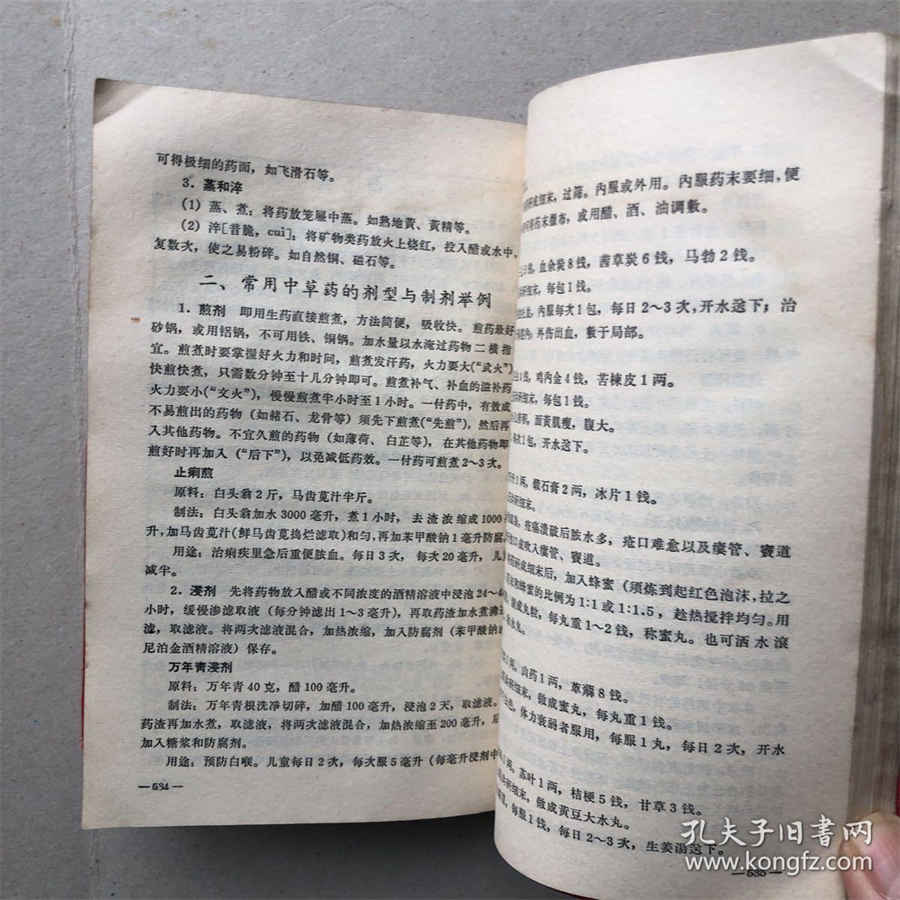 可得极细的药面，如飞滑石等。
3．蒸和淬
(1) 蒸、煮：将药放笼屉中蒸。如熟地黄、黄精等。
(2) 淬[音脆，cuì]：将矿物类药放火上烧红，投入醋或水中，
复数次，使之易粉碎。如自然铜、磁石等。
二、常用中草药的剂型与制剂举例
1．煎剂 即用生药直接煎煮，方法简便，吸收快。煎药最好
砂锅，或用铝锅，不可用铁、铜锅。加水量以水淹过药物二横指
宜。煎煮时要掌握好火力和时间，煎煮发汗药，火力要大(“武火”)
快煎快煮，只需数分钟至十几分钟即可。煎煮补气、补血的滋补药
火力要小(“文火”)，慢慢煎煮半小时至1小时。一付药中，有效成
不易煎出的药物（如赭石、龙骨等）须先下煎煮(“先煎”)，然后再
入其他药物。不宜久煎的药物（如薄荷、白芷等），在其他药物即
煎好时再加入（“后下”），以免减低药效。一付药可煎煮2～3次。
止痢煎
原料：白头翁2斤，马齿苋汁半斤。
制法：白头翁加水3000毫升，煮1小时，去渣浓缩成1000
升，加马齿苋汁(鲜马齿苋捣烂滤取)和匀，再加苯甲酸钠1毫升防腐
用途：治痢疾里急后重便脓血。每日3次，每次20毫升，儿
减半。
2．浸剂 先将药物放入醋或不同浓度的酒精溶液中浸泡24～4
小时，缓慢渗滤取液（每分钟滤出1～3毫升），再取药渣加水煮沸
滤，取滤液。将两次滤液混合，加热浓缩，加入防腐剂（苯甲酸钠
尼泊金酒精溶液）保存。
万年青浸剂
原料：万年青40克，醋100毫升。
制法：万年青根洗净切碎，加醋100毫升，浸泡2天，取滤液。
药渣再加水煮，取滤液，将两次滤液混合，加热浓缩至200毫升，
加入糖浆和防腐剂。
用途：预防白喉。儿童每日2次，每次服5毫升（每毫升浸剂中
—634—
研成细末，过筛。内服或外用。内服药末要细，便
将药末撒布，或用醋、酒、油调敷。
血余炭8钱，茜草炭6钱，马勃2钱。
研细末，每包1钱。
内服每次1包，每日2～3次，开水送下；治
外伤出血，敷于局部。
1两，鸡内金4钱，苦楝皮1两。
研细末，每包1钱。
面黄肌瘦，腹大。
1包，开水送下。
1两，煅石膏2两，冰片1钱。
研细末。
疮疡溃破后脓水多，疮口难愈以及瘘管、窦道
吹入瘘管、窦道。
研成细末后，加入蜂蜜（须炼到起红色泡沫，拉之
和蜂蜜的比例为1:1或1:1.5，趁热搅拌均匀。用
做成丸粒，每丸重1～2钱，称蜜丸。也可洒水滚
山药1两，萆薢8钱。
研细末，做成蜜丸，每丸重1钱。
体力衰弱者服用，每服1丸，每日2次，开水
苏叶1两，桔梗5钱，甘草3钱。
研细末，做成黄豆大水丸。
每服1钱，每日2～3次，生姜汤送下。
—635—
孔夫子旧书网
www.kongfz.com